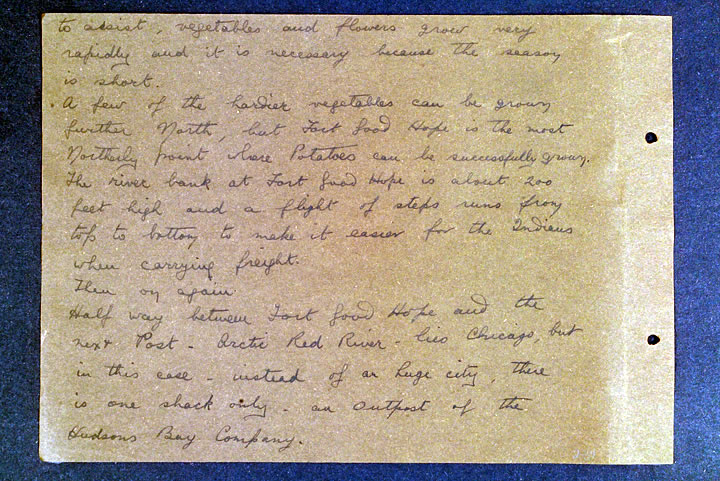 to assist, vegetables and flowers grow very
rapidly and it is necessary because the season
is short.
A few of the hardier vegetables can be grown
further North, but Fort Good Hope is the most
Northerly point where Potatoes can be successfully grown.
The river bank at Fort Good Hope is about 200
feet high and a flight of steps runs from
top to bottom to make it easier for the Indians
when carrying freight.
Then on again.
Half way between Fort Good Hope and the
next Post - Arctic Red River - lies Chicago, but
in this case - instead of an huge city, there
is one shack only - an outpost of the
Hudsons Bay Company.